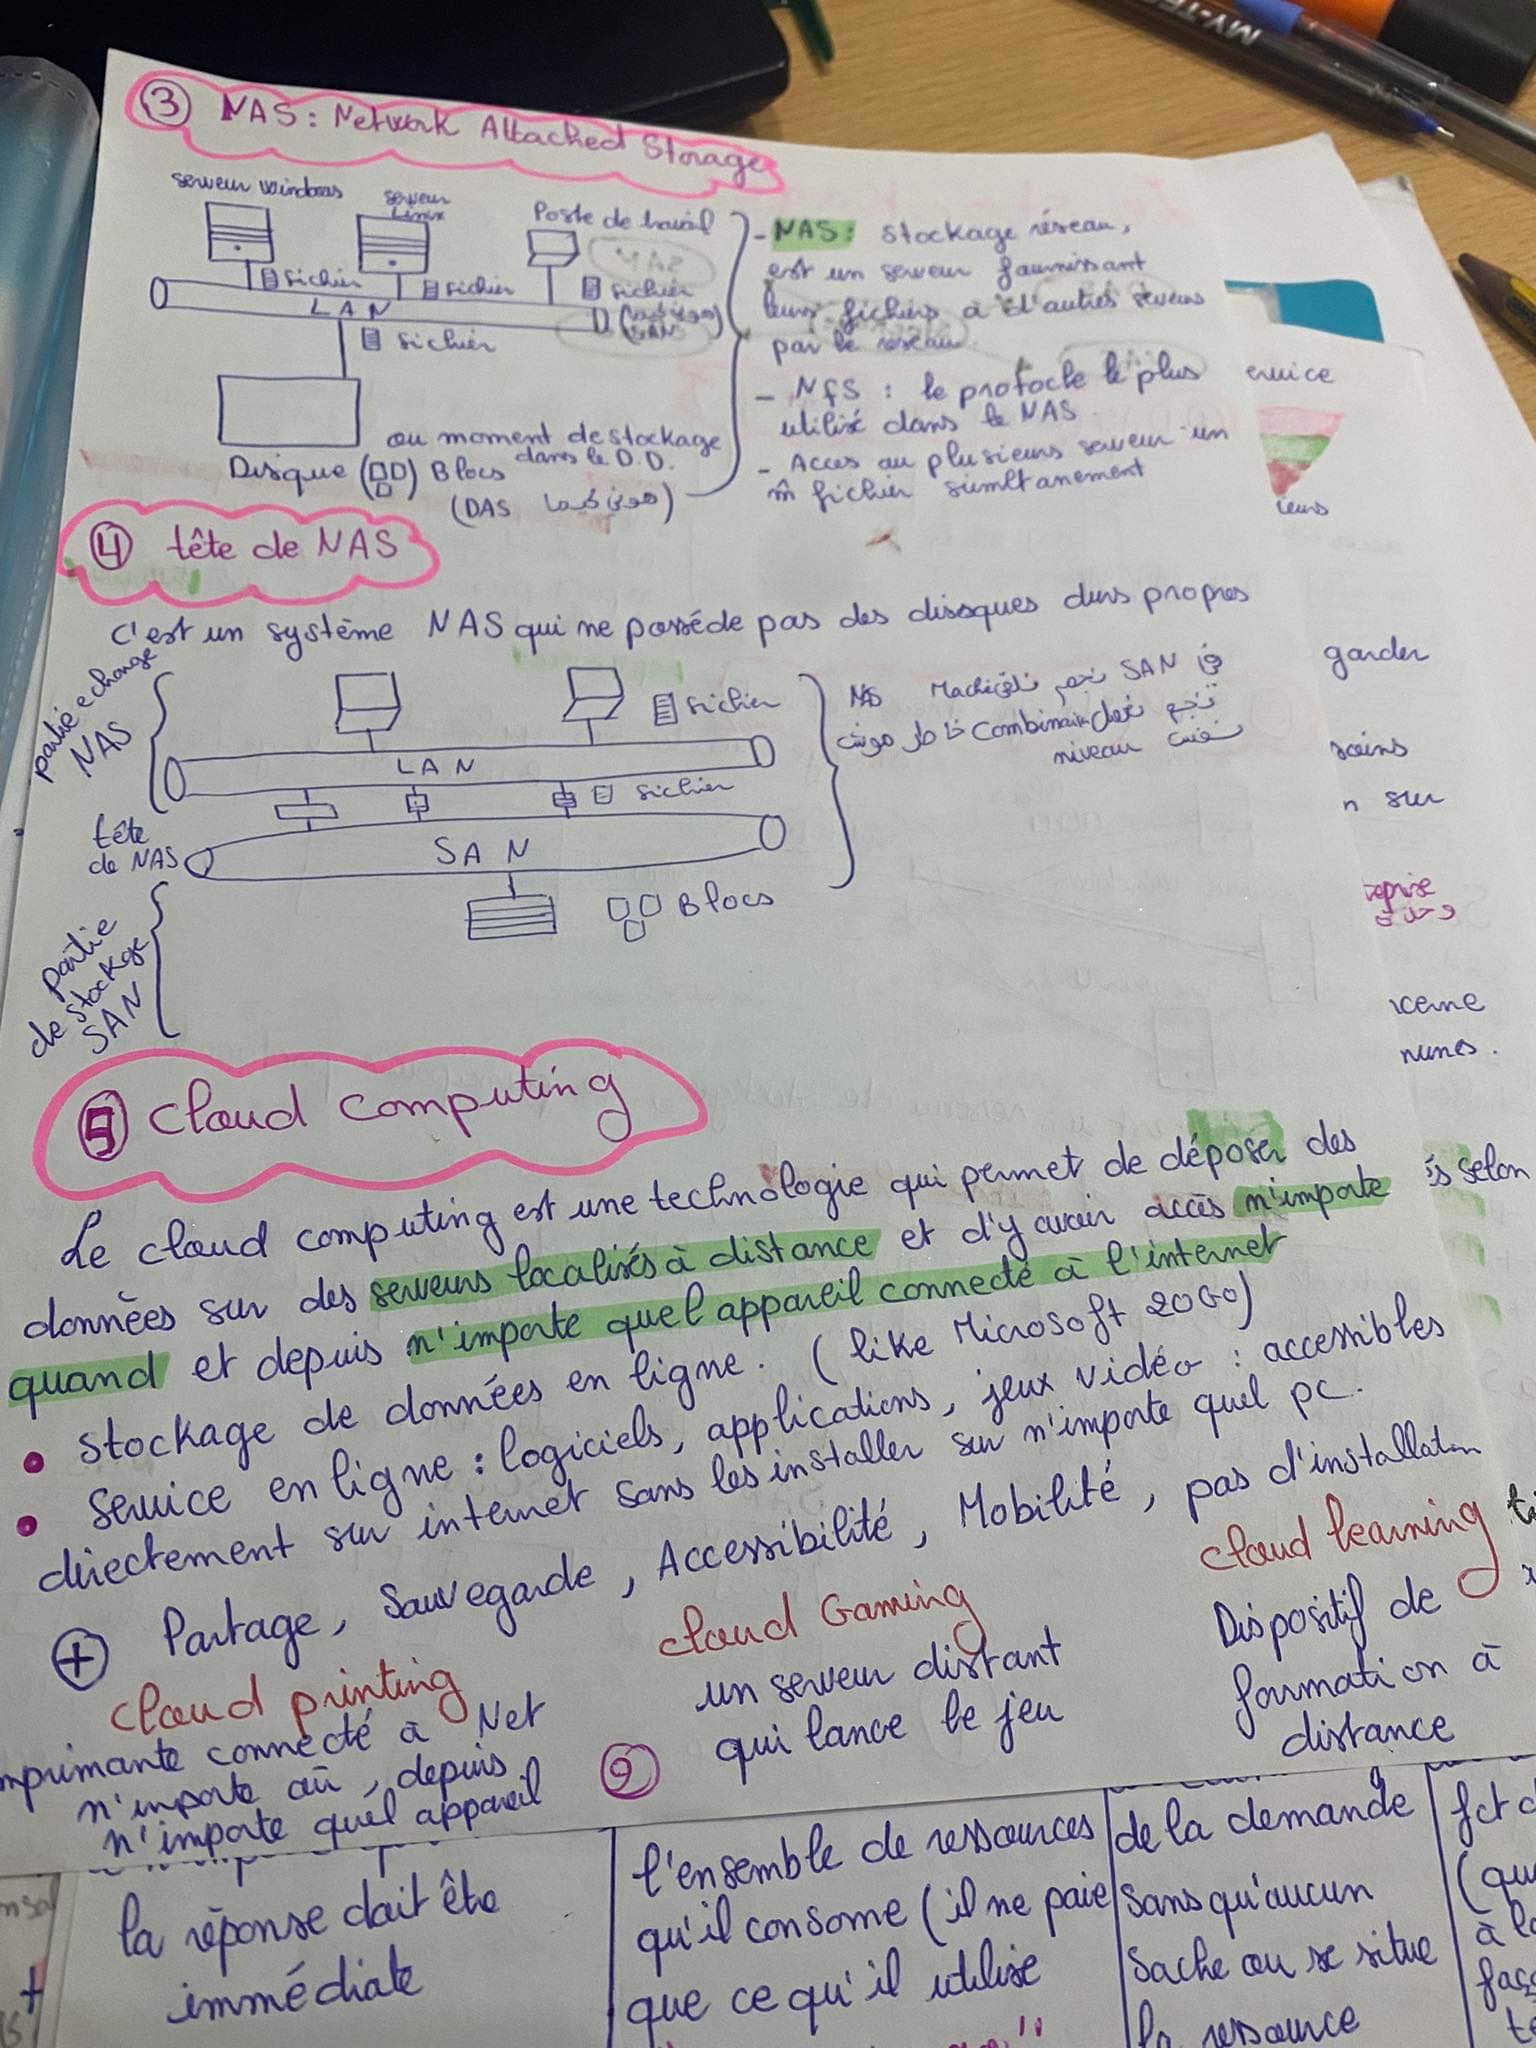 ③ NAS : Network Attached Storage
serveur windows
serveur Linux
Poste de travail
fichier
fichier
fichier
LAN
SAN
fichier
Disque
Blocs
au moment de stockage
dans le D.D.
(DAS كيما موش)
- NAS : stockage réseau,
est un serveur fournissant
leurs fichiers à d'autres serveurs
par le réseau
- NFS : le protocle le plus
utilisé dans le NAS
- Acces au plusieurs serveur un
m̂ fichier simultanement
④ tête de NAS
C'est un système NAS qui ne posséde pas des disques durs propres
partie echange
NAS
fichier
LAN
fichier
tête
de NAS
SAN
Blocs
partie
de stockage
SAN
niveau
⑤ Cloud computing
Le cloud computing est une technologie qui permet de déposer des
données sur des serveurs localisés à distance et d'y avoir accès n'importe
quand et depuis n'importe quel appareil connecté à l'internet
• Stockage de données en ligne. (like Microsoft 20Go)
• Service en ligne : logiciels, applications, jeux vidéo : accessibles
directement sur internet sans les installer sur n'importe quel pc.
⊕ Partage, Sauvegarde, Accessibilité, Mobilité, pas d'installation
cloud printing
mprimante connecté à Net
n'importe où, depuis
n'importe quel appareil
cloud Gaming
un serveur distant
qui lance le jeu
cloud learning
Dispositif de
formation à
distance
⑨
ervice
ieurs
garder
soins
n sur
reprise
nunes.
is selon
la réponse doit être
immédiate
l'ensemble de ressources
qu'il consome (il ne paie
que ce qu'il utilise
de la demande
sans qu'aucun
sache ou se situe
la ressource
MY-TE